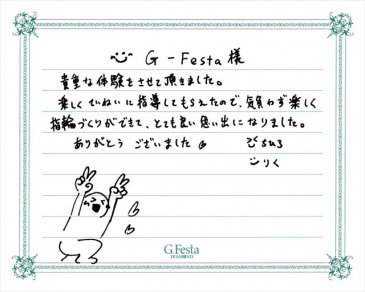 G-Festa 様
貴重な体験をさせて頂きました。
楽しくていねいに指導してもらえたので、気負わず楽しく
指輪づくりができて、とても良い思い出になりました。
ありがとう ございました
りく
G.Festa
DIAMOND